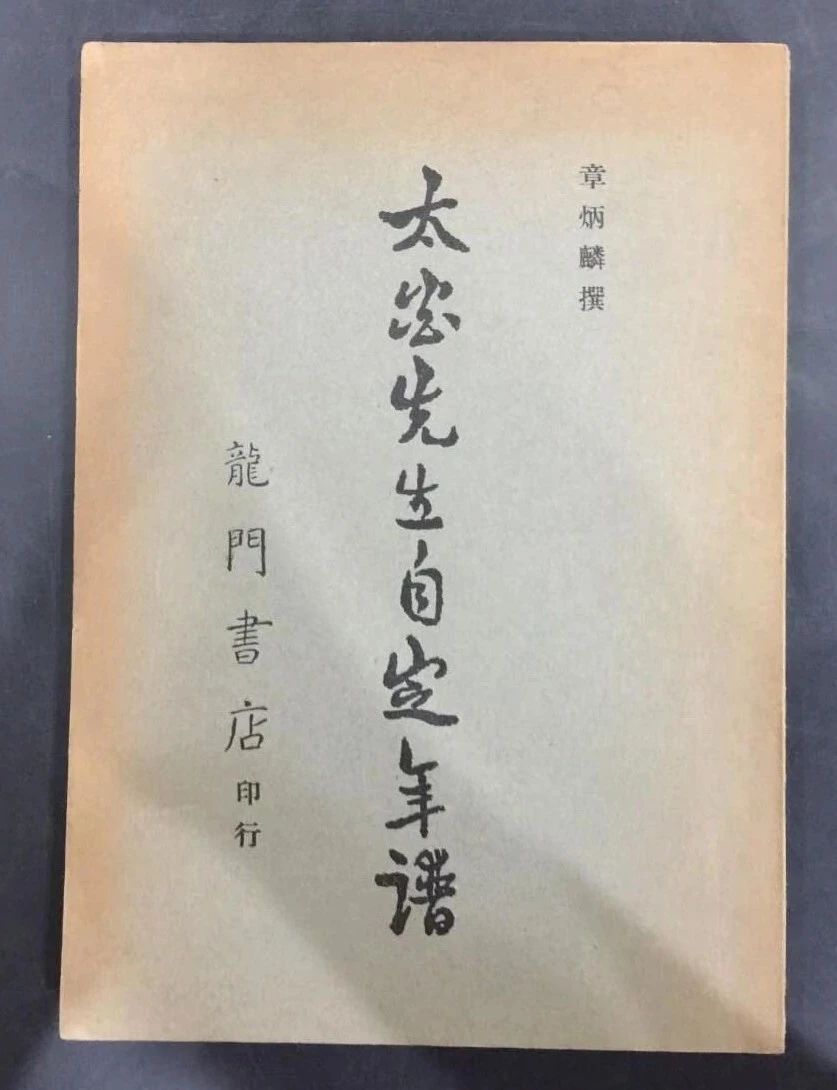 章炳麟撰
太炎先生自定年譜
龍門書店印行